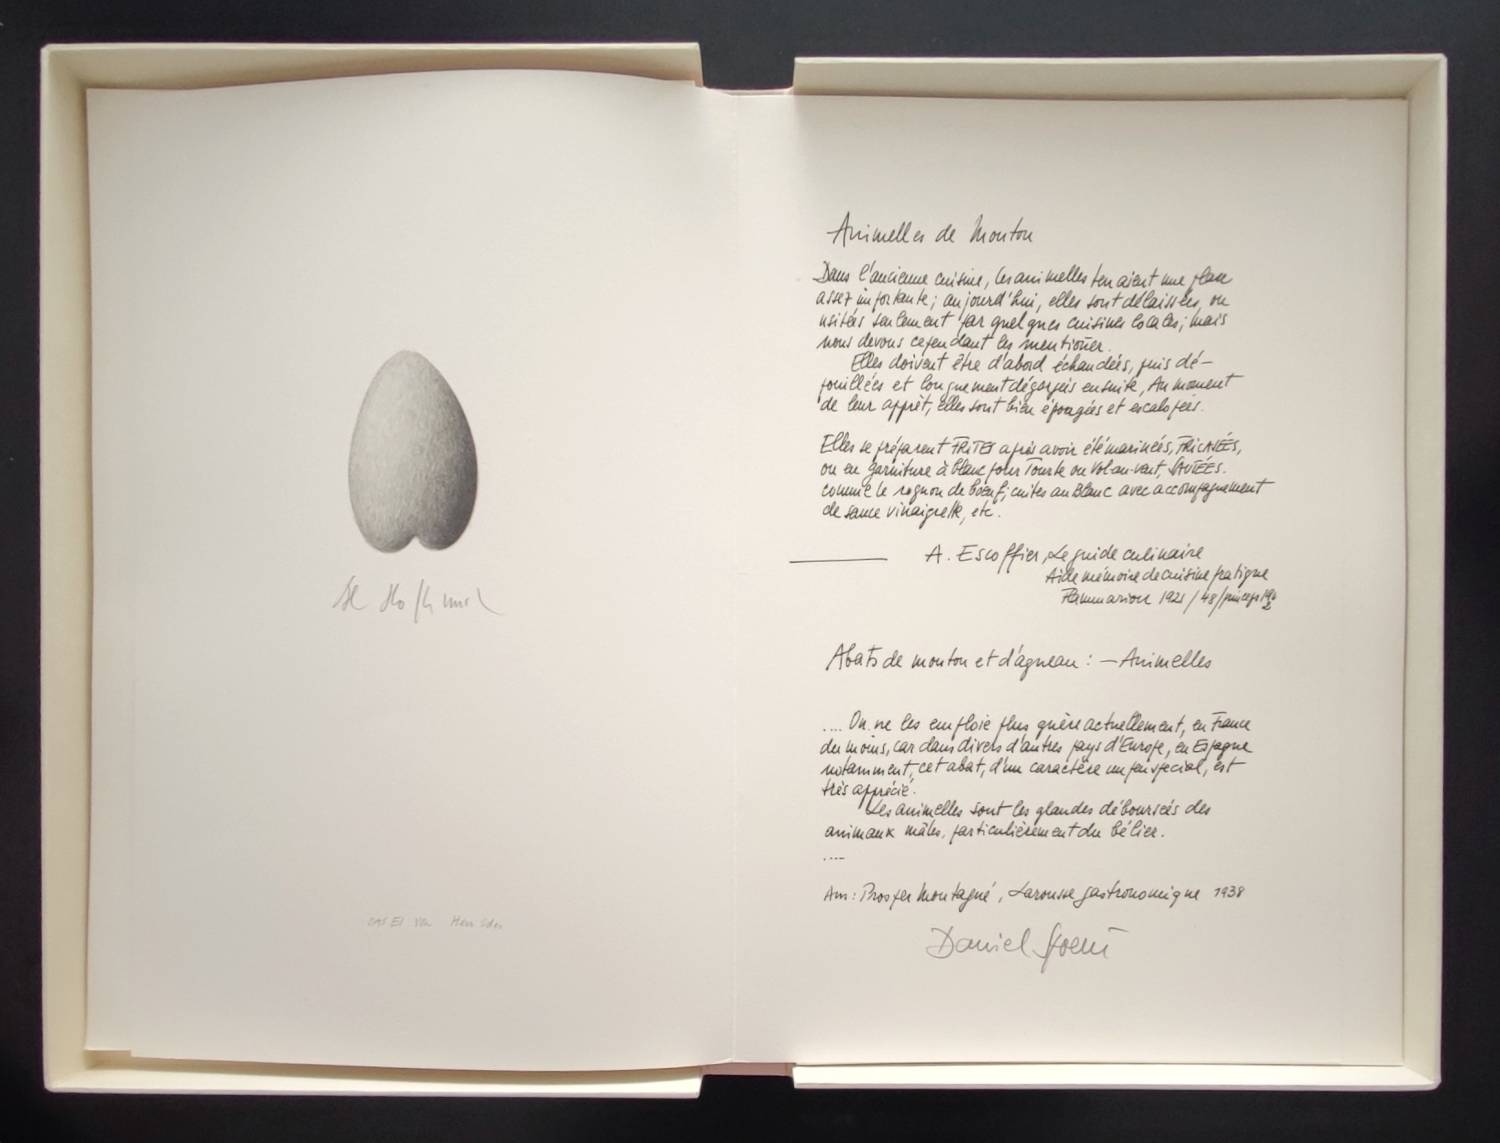 DAS EI von
Animelles de Mouton
Dans l'ancienne cuisine, les animelles tenaient une place
assez importante; aujourd'hui, elles sont délaissées, ou
usitées seulement par quelques cuisines locales; mais
nous devons cependant les mentioner.
Elles doivent être d'abord échaudées, puis dé-
pouillées et longuement dégorgées ensuite, Au moment
de leur apprêt, elles sont bien épongées et escalopées.
Elles se préparent FRITES après avoir été marinées, FRICASÉES,
ou en garniture à blanc pour Tourte ou Vol-au-vent, SAUTÉES.
comme le rognon de boeuf; cuites au Blanc avec accompagnement
de sauce vinaigrette, etc.
A. Escoffier, Le guide culinaire
Aide mémoire de cuisine pratique
Flammarion 1921 / 48 /
Abats de mouton et d'agneau : — Animelles
.... On ne les emploie plus guère actuellement, en France
du moins, car dans divers d'autres pays d'Europe, en Espagne
notamment, cet abat, d'un caractère un peu special, est
très apprécié.
Les animelles sont les glandes déboursés des
animaux mâles, particulièrement du bélier.
....
Aus: Prosper Montagné, Larousse gastronomique 1938
Daniel Spoerri